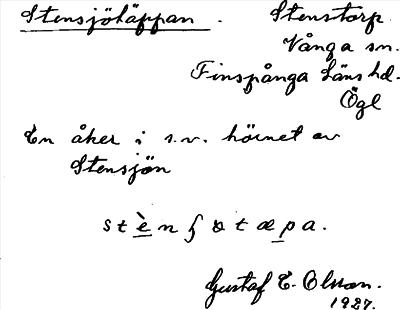 Stensjötäppan. Stenstorp
Vånga sn.
Finspånga läns hd.
Ögl
En åker i s.v. hörnet av
Stensjön
stènʃɷtæpa.
Gustaf E. Olsson.
1927.